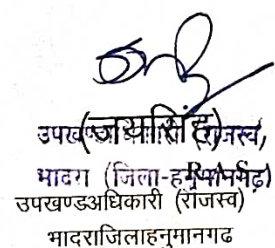 (जयसिंह)
उपखण्ड अधिकारी (राजस्व),
भादरा (जिला-हनुमानगढ़)
उपखण्डअधिकारी (राजस्व)
भादराजिलाहनुमानगढ